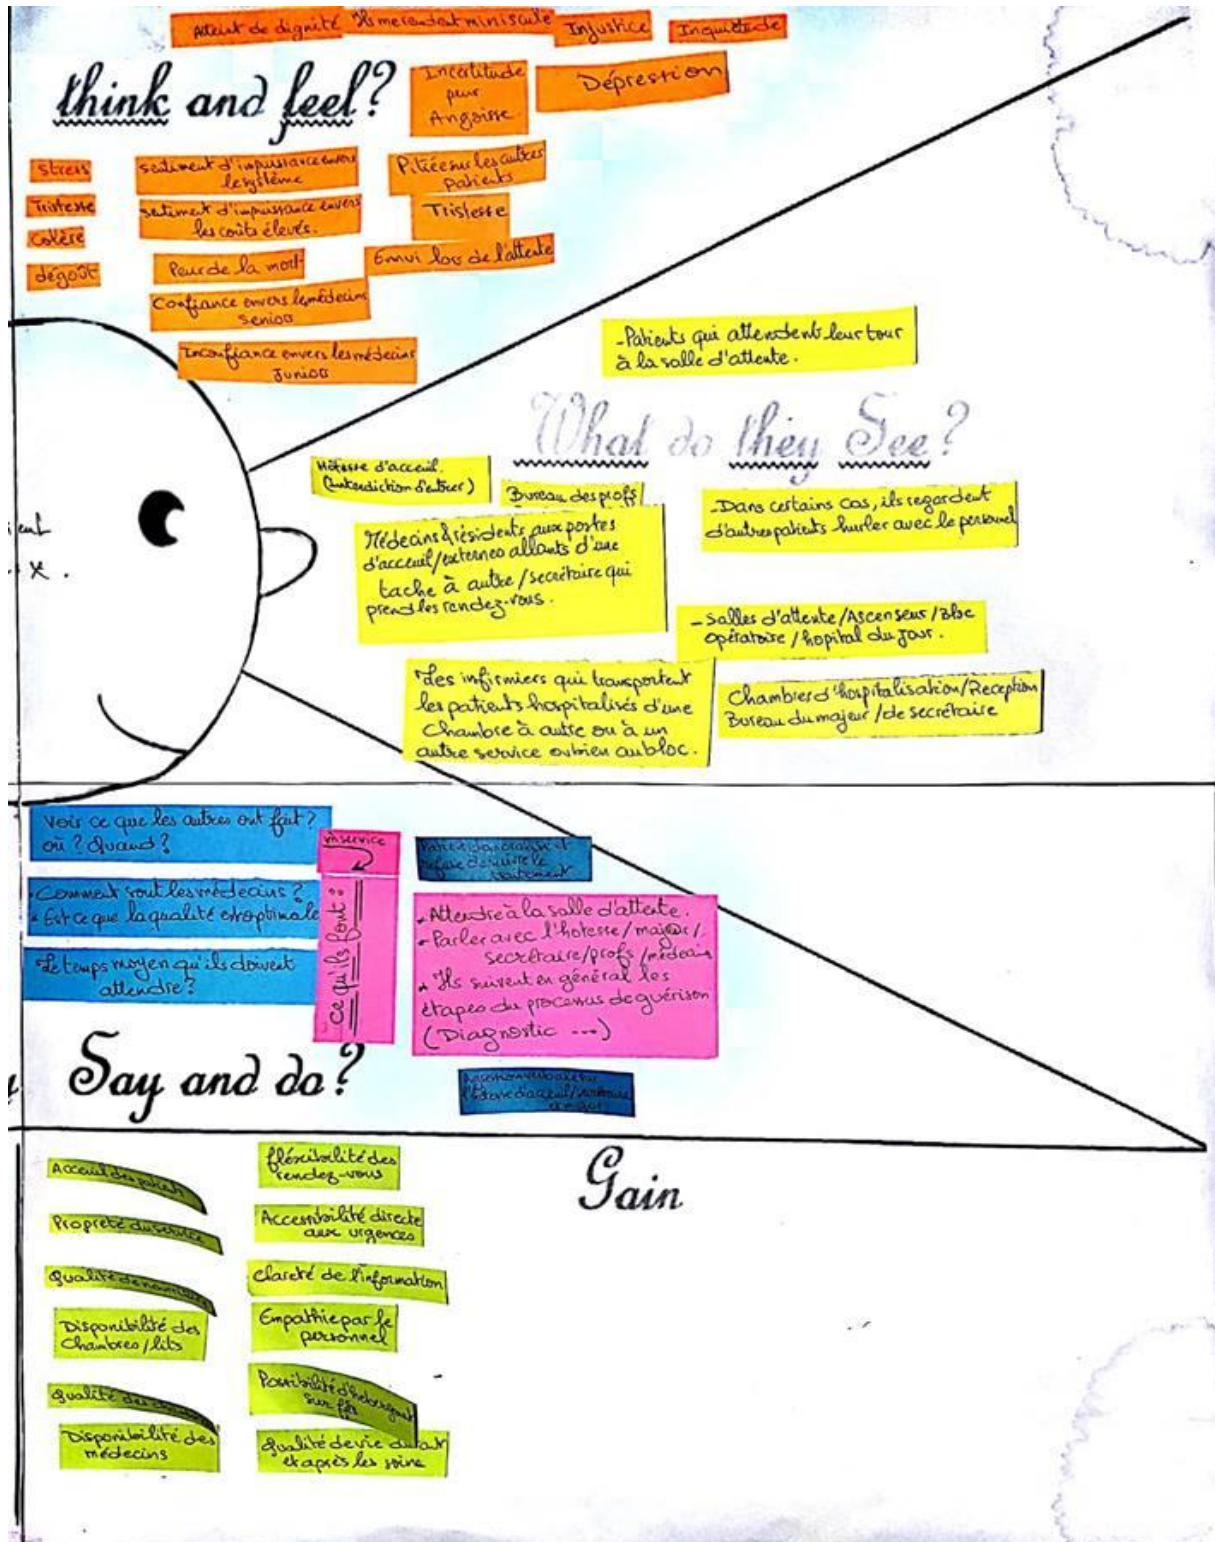 Atteint de dignité
Ils me rendent miniscule
Injustice
Inquiétude
think and feel?
Incertitude
peur
Angoisse
Dépression
stress
Tristesse
Colère
dégoût
sentiment d'impuissance envers
le système
sentiment d'impuissance envers
les coûts élevés.
Peur de la mort
Confiance envers les médecins
seniors
Inconfiance envers les médecins
Juniors
Pitiée sur les autres
patients
Tristesse
Ennui lors de l'attente
-Patients qui attendent leur tour
à la salle d'attente.
What do they See?
Hôtesse d'acceuil.
(interdiction d'entrer)
Bureau des profs
Médecins & résidents aux postes
d'acceuil/externes allants d'une
tache à autre/secrétaire qui
prend les rendez-vous.
-Dans certains cas, ils regardent
d'autres patients hurler avec le personnel
-Salles d'attente/Ascenseur/Bloc
opératoire/hopital du jour.
Les infirmiers qui transportent
les patients hospitalisés d'une
Chambre à autre ou à un
autre service oubien au bloc.
Chambres d'hospitalisation/Reception
Bureau du majeur/de secrétaire
ent
x.
Voir ce que les autres ont fait?
où? Quand?
Comment sont les médecins?
Est ce que la qualité est optimale
Le temps moyen qu'ils doivent
attendre?
service
ce qu'ils font:
refuse de suivre le
traitement
Attendre à la salle d'attente.
Parler avec l'hotesse/major/
secrétaire/profs/médecin
Ils suivent en général les
étapes du processus de guérison
(Diagnostic ...)
Say and do?
Gain
Acceuil des patients
Propreté du service
Qualité de
Disponibilité des
Chambres/lits
Qualité des
Disponibilité des
médecins
fléxibilité des
rendez-vous
Accessibilité directe
aux urgences
Clareté de l'information
Empathie par le
personnel
Possibilité d'hébergement
sur
Qualité de vie durant
et après les soins